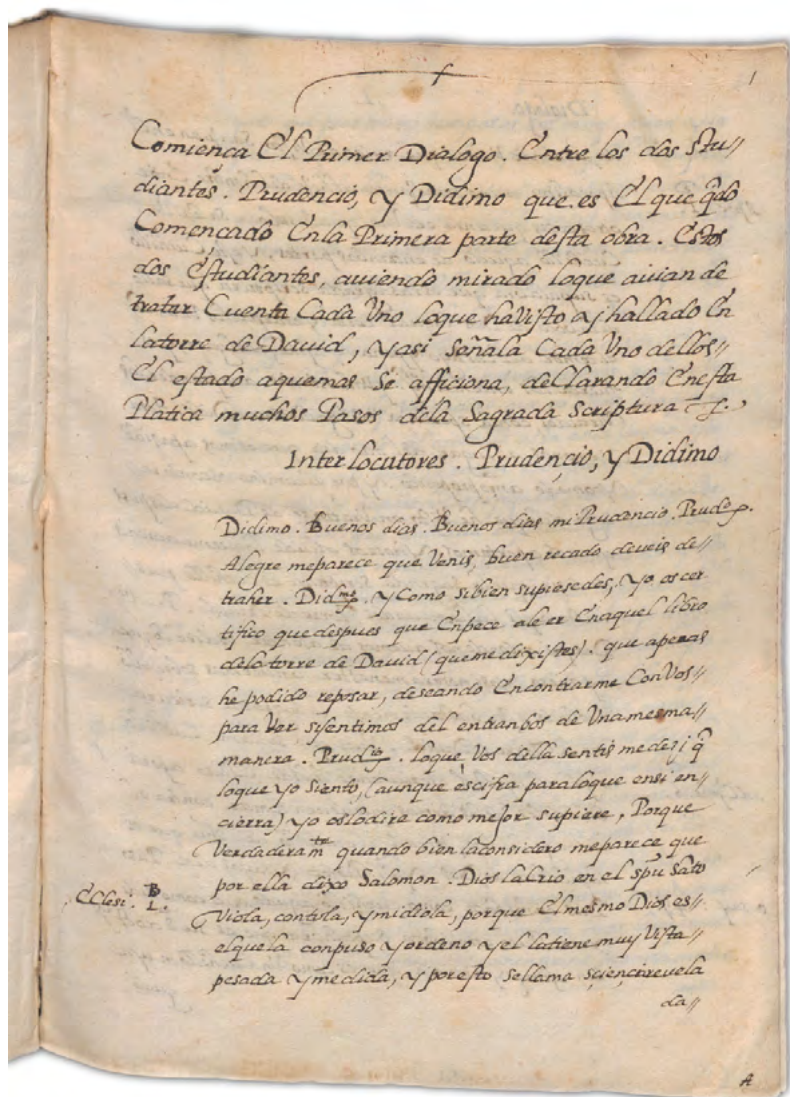 1
Comiença El Primer Dialogo. Entre los dos Stu//
diantes. Prudencio, y Didimo que es El que q̃do
Comencado Enla Primera parte desta obra. Estos
dos Estudiantes, auiendo mirado loque auian de
tratar Cuenta Cada Vno loque haVisto ay hallado En
latorre de Dauid, yasi Señala Cada Vno dellos//
El estado aquemas Se afficiona, deCllarando Enesta
Platica muchos Pasos dela Sagrada Scriptura
Interlocutores. Prudençio, y Didimo
Didimo. Buenos dias. Buenos dias mi Prudencio. Prudº.
Alegre meparece que Venis, buen recado deueis de//
traher. Didmo. y Como sibien supiesedes, yo os cer
tifico que despues que Enpece aleer Enaquel libro
dela torre de Dauid (queme dixistes). que apenas
he podido reposar, deseando Encontrarme ConVos//
para Ver sisentimos del entranbos de Vnamesma//
manera. Prudio. loque Vos della sentis me dezi q̃
loque yo siento, (aunque escifra paraloque ensi en//
cierra) yo oslodire como mejor supiere, Porque
Verdaderamte quando bien laconsidero meparece que
por ella dixo Salomon. Dios laCrio en el spũ Sãto
EClesi. 1.
Viola, contola, ymidiola, porque Elmesmo Dios es//
elquela conpuso yordeno yel latiene muy Vista//
pesada ymedida, y poresto sellama sciencirevela
da//
A